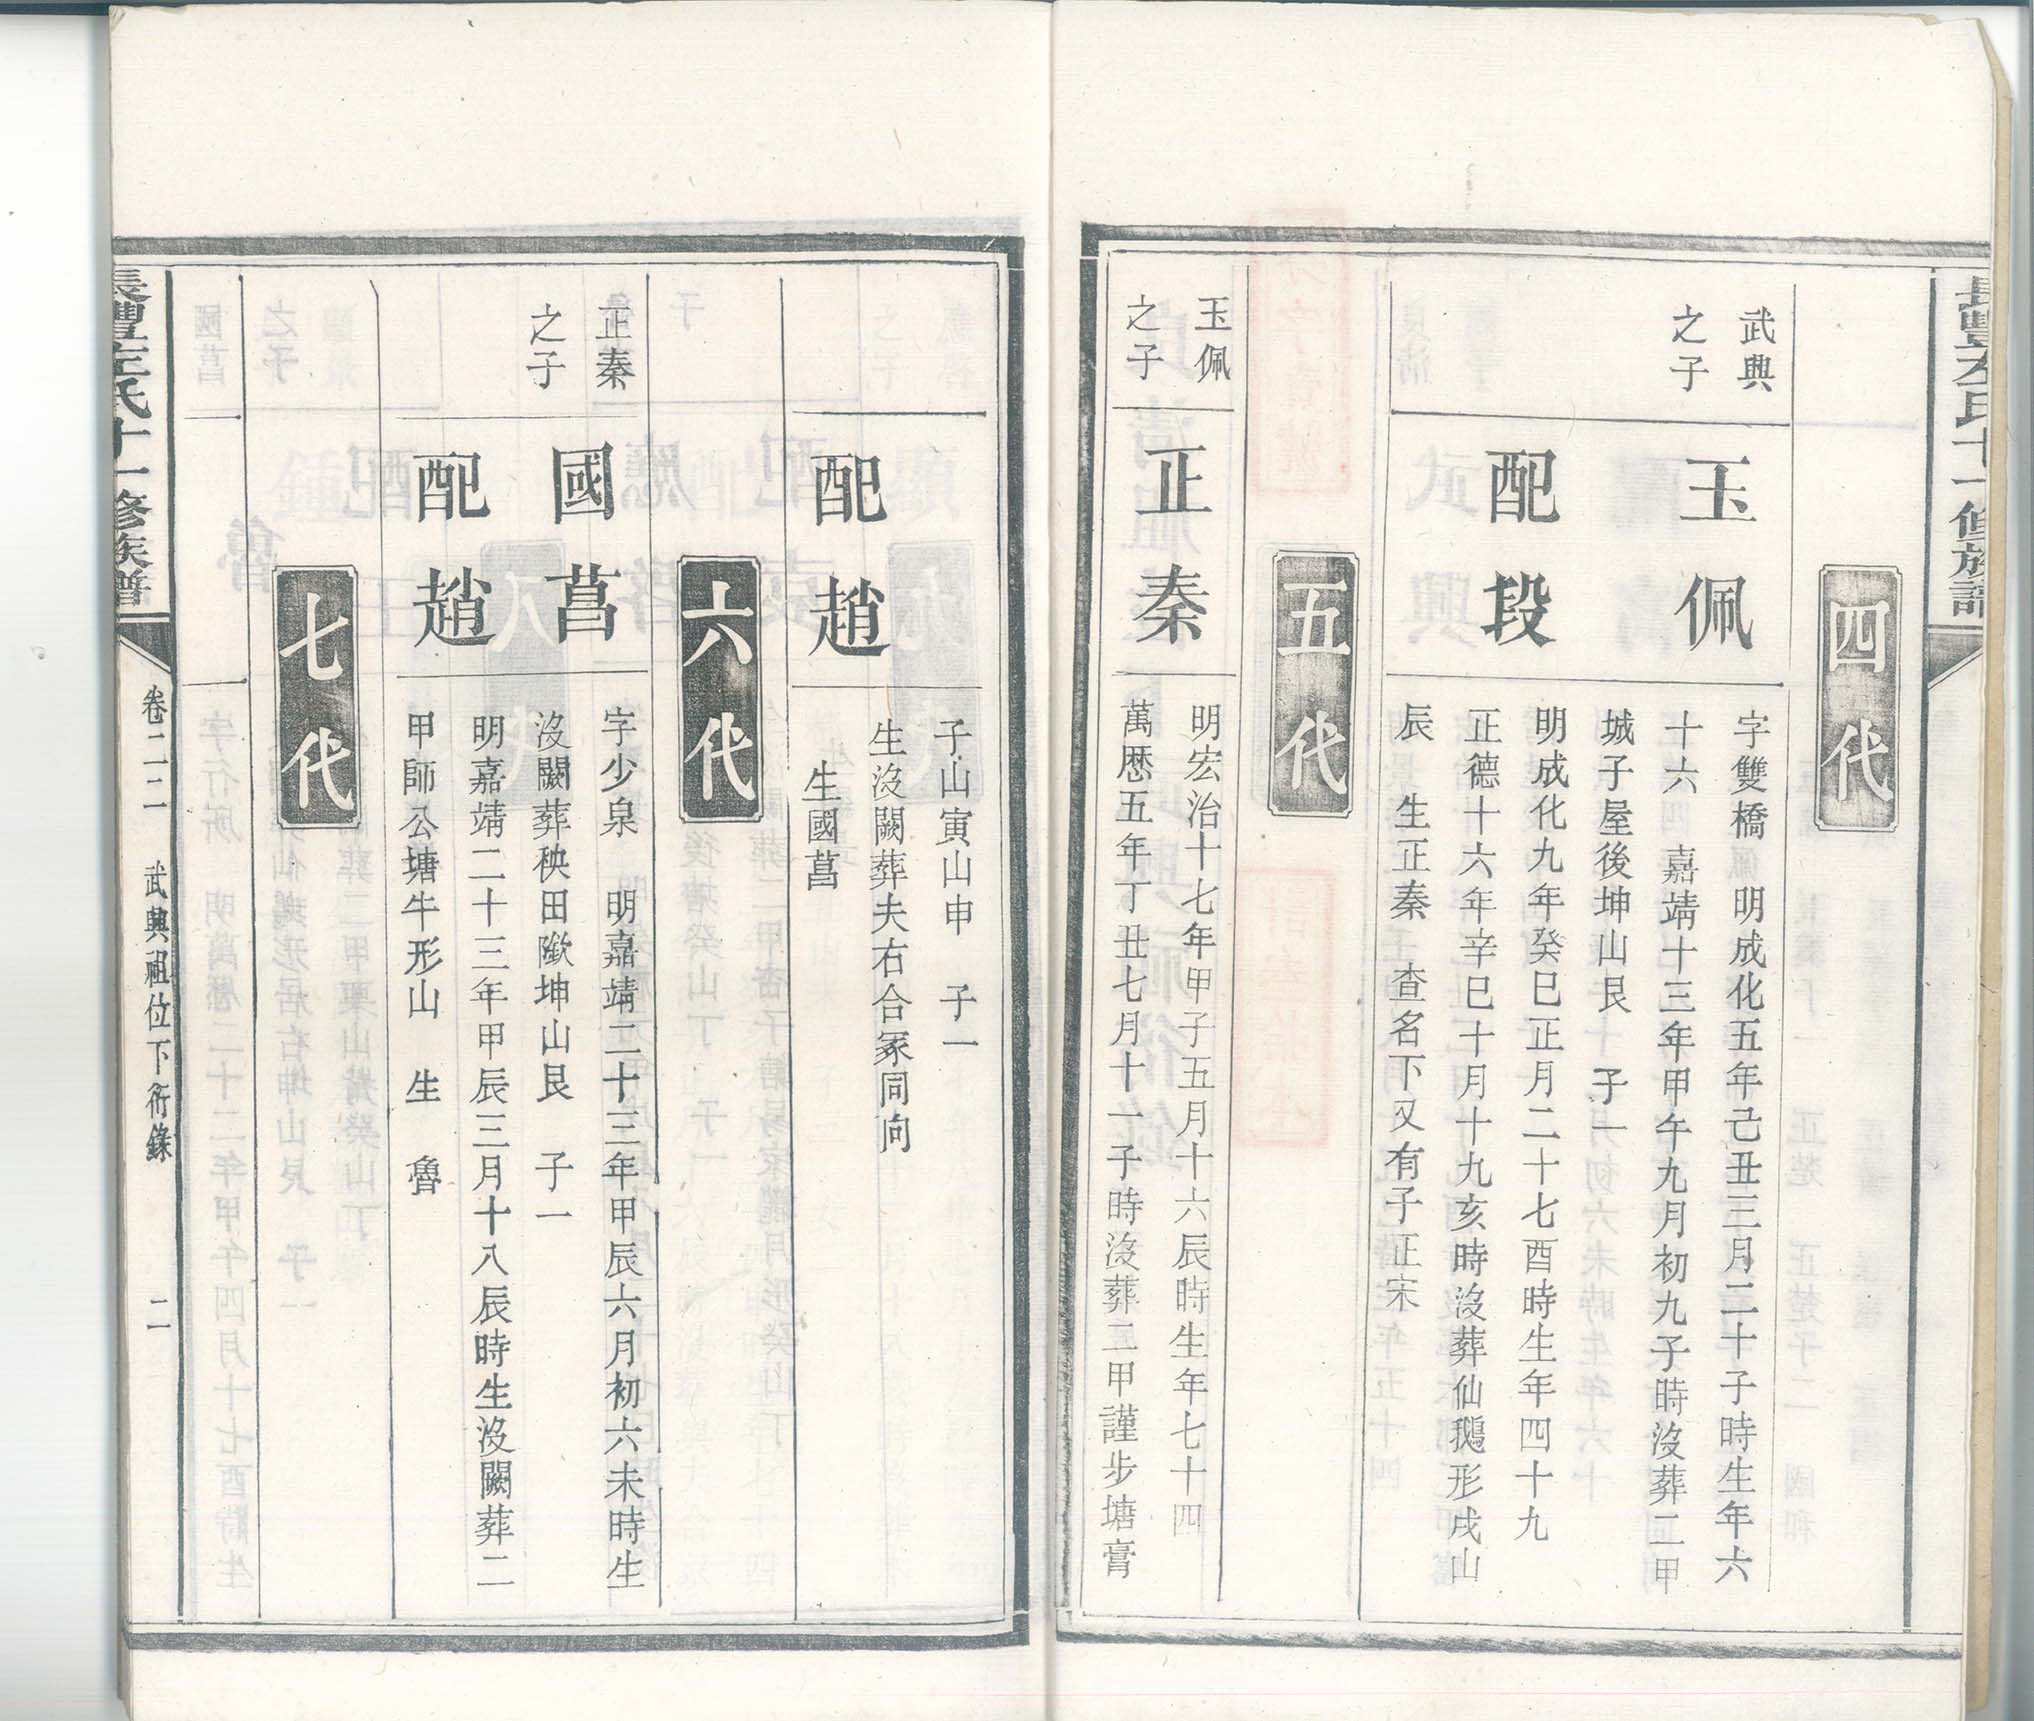 長豐左氏十一修族譜
四代
武興
之子
玉佩
字雙橋　明成化五年己丑三月二十子時生年六
十六　嘉靖十三年甲午九月初九子時沒葬二甲
城子屋後坤山艮　子一
配段
明成化九年癸巳正月二十七酉時生年四十九
正德十六年辛巳十月十九亥時沒葬仙鵝形戌山
辰　生正秦　查名下又有子正宋
五代
玉佩
之子
正秦
明宏治十七年甲子五月十六辰時生年七十四
萬歷五年丁丑七月十一子時沒葬二甲謹步塘膏
子山寅山申　子一
配趙
生沒闕葬夫右合冢同向
生國菖
六代
正秦
之子
國菖
字少泉　明嘉靖二十三年甲辰六月初六未時生
沒闕葬秧田坤山艮　子一
配趙
明嘉靖二十三年甲辰三月十八辰時生沒闕葬二
甲師公塘牛形山　生　魯
七代
國菖
之子
魯
長豐左氏十一修族譜
卷二二　武興祖位下衍錄　二